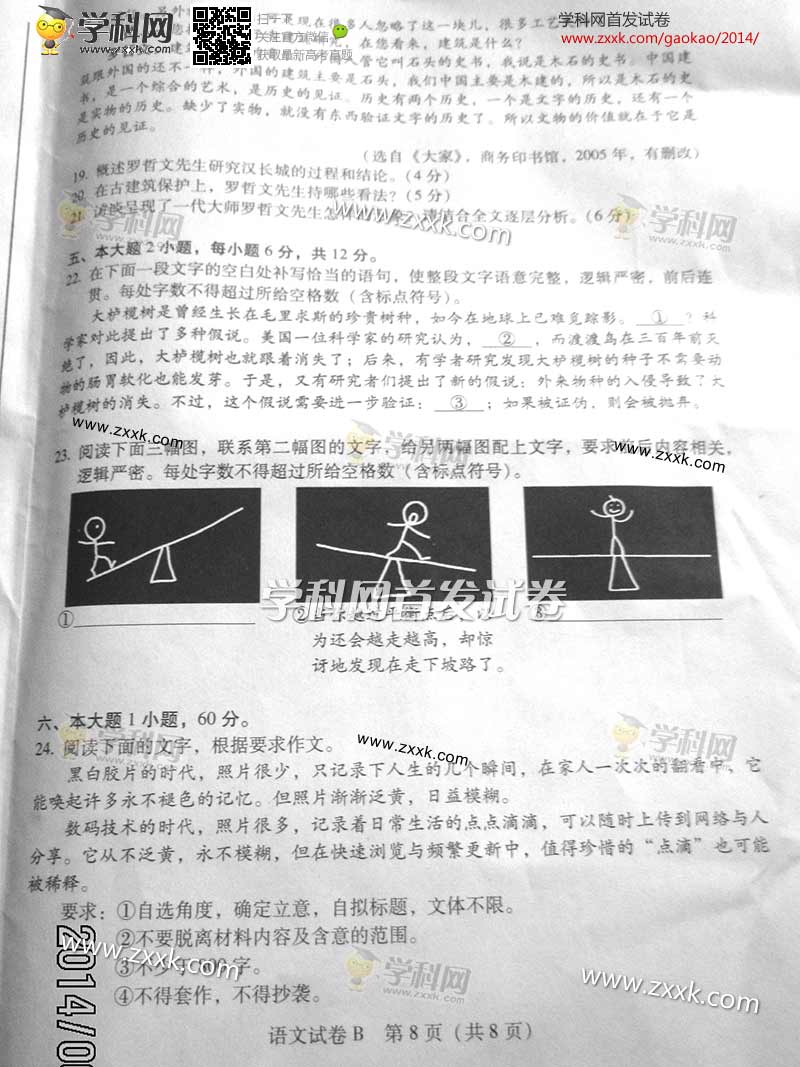 学科网
扫一扫
关注官方微信
获取最新高考真题
学科网首发试卷
www.zxxk.com/gaokao/2014/
现在很多人忽略了这一块儿，很多工艺
在您看来，建筑是什么？
管它叫石头的史书，我说是木石的史书。中国建
筑跟外国的还不一样，外国的建筑主要是石头，我们中国主要是木建的，所以是木石的史
书，是一个综合的艺术，是历史的见证。历史有两个历史，一个是文字的历史，还有一个
是实物的历史。缺少了实物，就没有东西验证文字的历史了。所以文物的价值就在于它是
历史的见证。
（选自《大家》，商务印书馆，2005年，有删改）
19. 概述罗哲文先生研究汉长城的过程和结论。（4分）
20. 在古建筑保护上，罗哲文先生持哪些看法？（5分）
21. 访谈呈现了一代大师罗哲文先生怎样 结合全文逐层分析。（6分）
学科网
www.zxxk.com
五、本大题2小题，每小题6分，共12分。
22. 在下面一段文字的空白处补写恰当的语句，使整段文字语意完整，逻辑严密，前后连
贯。每处字数不得超过所给空格数（含标点符号）。
大栌榄树是曾经生长在毛里求斯的珍贵树种，如今在地球上已难觅踪影。 ① ？科
学家对此提出了多种假说。美国一位科学家的研究认为， ② ，而渡渡鸟在三百年前灭
绝了，因此，大栌榄树也就跟着消失了；后来，有学者研究发现大栌榄树的种子不需要动
物的肠胃软化也能发芽。于是，又有研究者们提出了新的假说：外来物种的入侵导致了大
栌榄树的消失。不过，这个假说需要进一步验证： ③ ；如果被证伪，则会被抛弃。
www.zxxk.com
23. 阅读下面三幅图，联系第二幅图的文字，给另两幅图配上文字，要求前后内容相关，
逻辑严密。每处字数不得超过所给空格数（含标点符号）。
www.zxxk.com
学科网首发试卷
①
②
③
为还会越走越高，却惊
讶地发现在走下坡路了。
六、本大题1小题，60分。
24. 阅读下面的文字，根据要求作文。
www.zxxk.com
学科网
黑白胶片的时代，照片很少，只记录下人生的几个瞬间，在家人一次次的翻看中，它
能唤起许多永不褪色的记忆。但照片渐渐泛黄，日益模糊。
数码技术的时代，照片很多，记录着日常生活的点点滴滴，可以随时上传到网络与人
分享。它从不泛黄，永不模糊，但在快速浏览与频繁更新中，值得珍惜的“点滴”也可能
被稀释。
要求：①自选角度，确定立意，自拟标题，文体不限。
②不要脱离材料内容及含意的范围。
③不少于 字。
④不得套作，不得抄袭。
www.zxxk.com
学科网
www.zxxk.com
语文试卷B 第8页（共8页）
2014/0